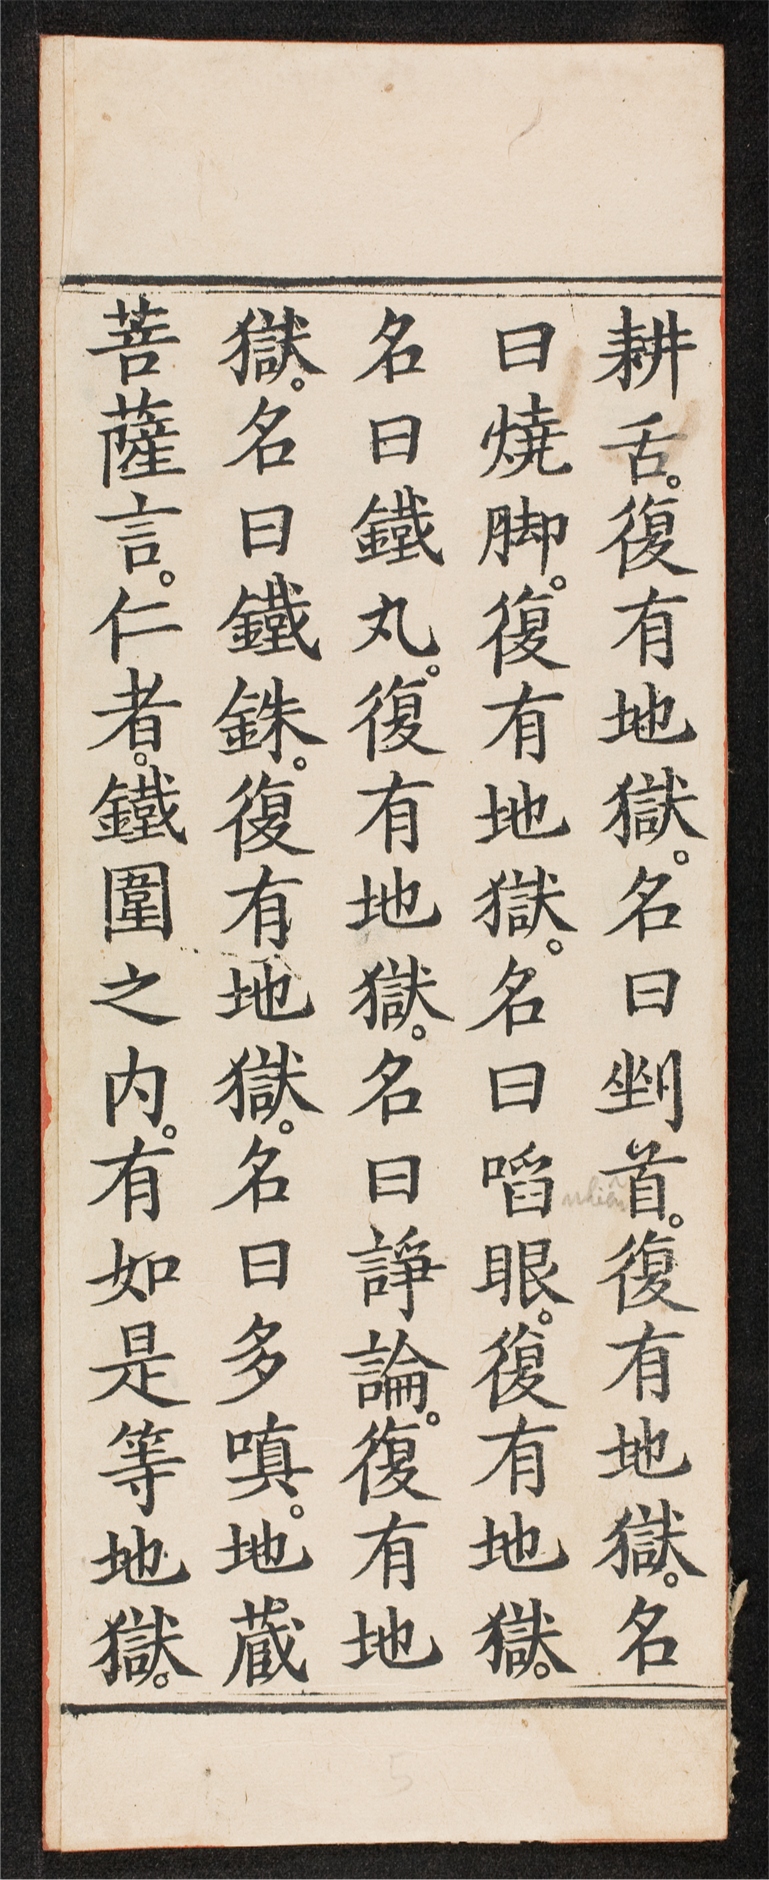 耕舌。復有地獄。名曰剉首。復有地獄。名
曰燒脚。復有地獄。名曰啗眼。復有地獄。
名曰鐵丸。復有地獄。名曰諍論。復有地
獄。名曰鐵銖。復有地獄。名曰多嗔。地蔵
菩薩言。仁者。鐵圍之内。有如是等地獄。
5